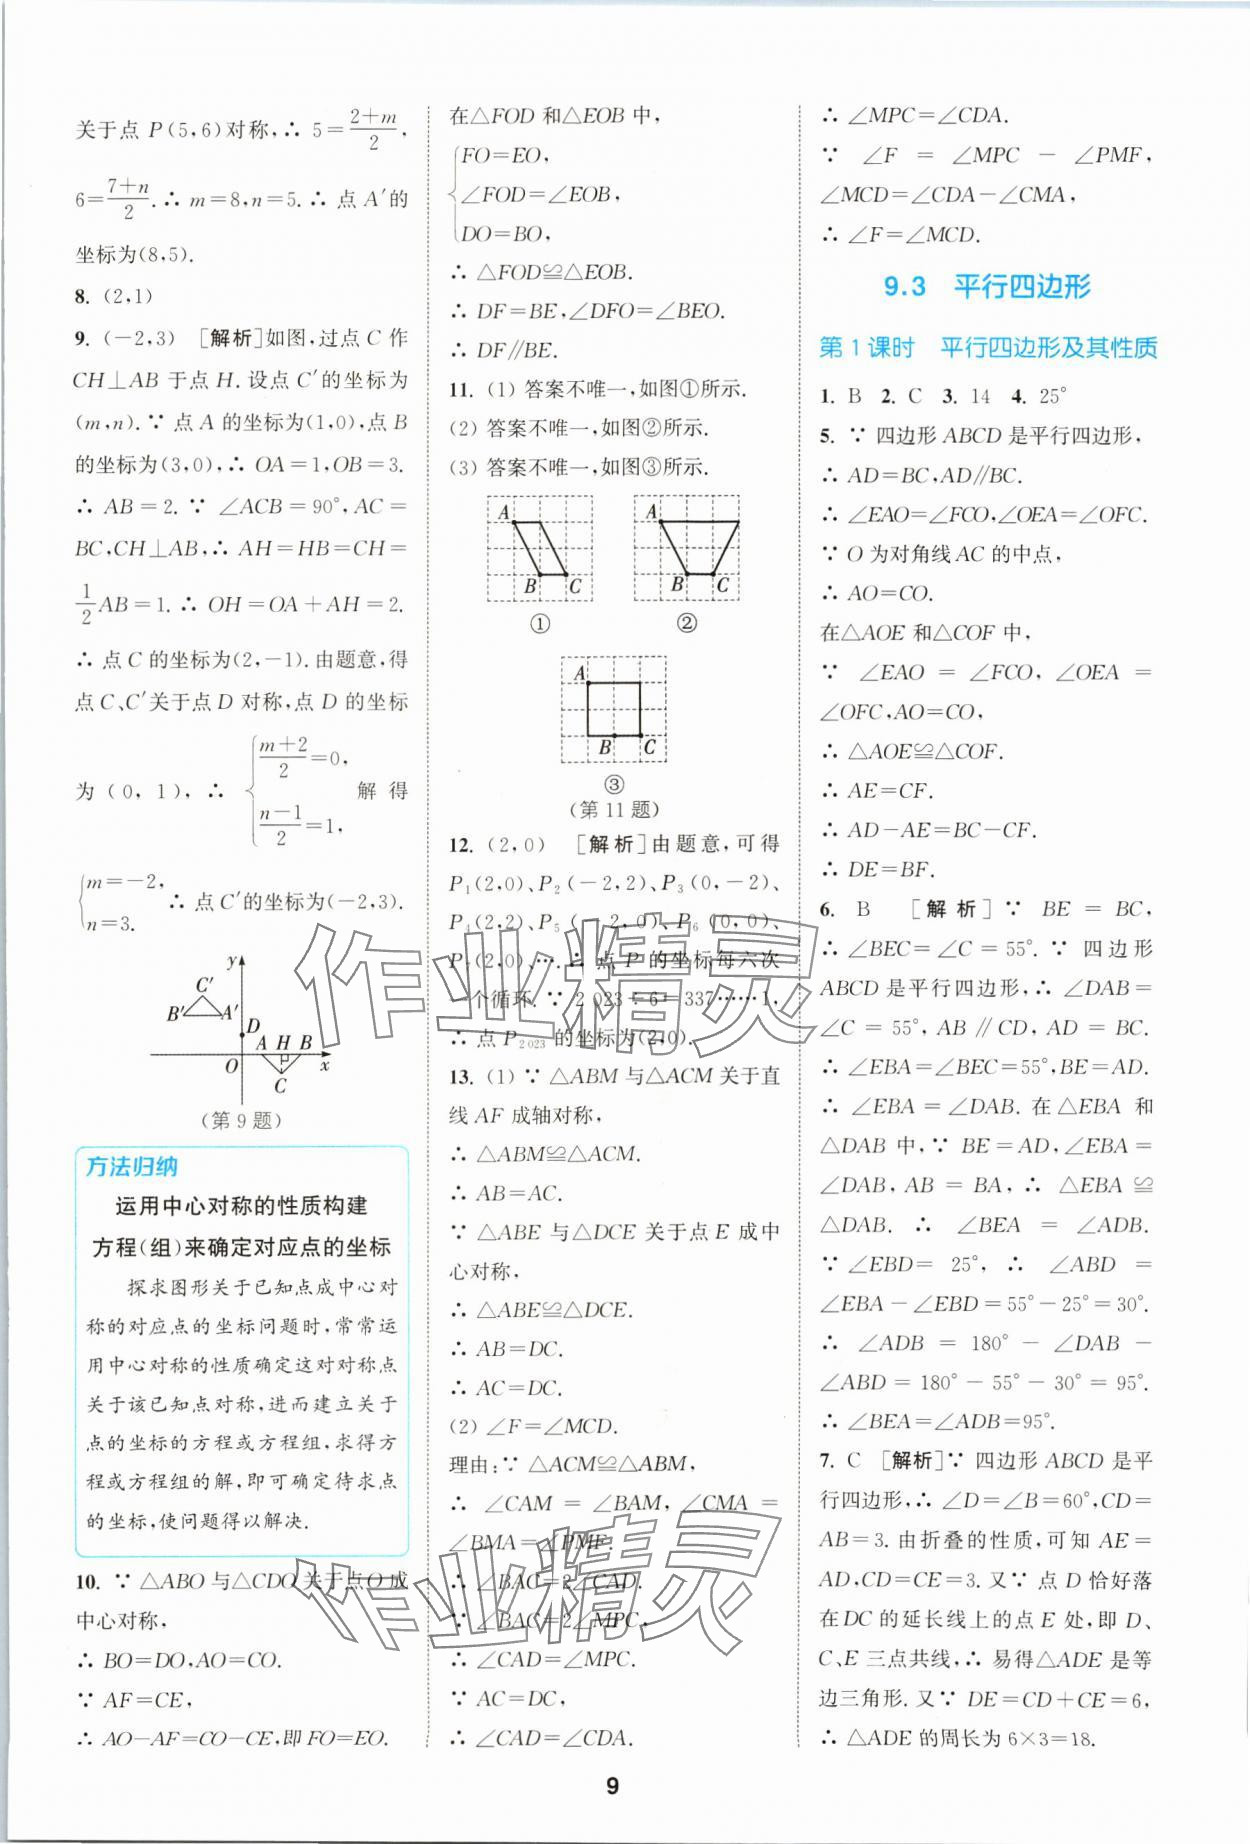 关于点 P(5,6)对称,∴ 5=\frac{2+m}{2},
6=\frac{7+n}{2}.∴ m=8,n=5.∴ 点 A′的
坐标为(8,5).
8. (2,1)
9. (-2,3) [解析]如图,过点 C 作
CH⊥AB 于点 H. 设点 C′的坐标为
(m,n).∵ 点 A 的坐标为(1,0),点 B
的坐标为(3,0),∴ OA=1,OB=3.
∴ AB=2.∵ ∠ACB=90°,AC=
BC,CH⊥AB,∴ AH=HB=CH=
\frac{1}{2}AB=1.∴ OH=OA+AH=2.
∴ 点 C 的坐标为(2,-1).由题意,得
点 C、C′关于点 D 对称,点 D 的坐标
为(0,1),∴ {\frac{m+2}{2}=0, \frac{n-1}{2}=1, 解得
{m=-2, n=3. ∴ 点 C′的坐标为(-2,3).
y
C′
B′
A′
D
A H B
O
x
C
(第 9 题)
方法归纳
运用中心对称的性质构建
方程(组)来确定对应点的坐标
探求图形关于已知点成中心对
称的对应点的坐标问题时,常常运
用中心对称的性质确定这对对称点
关于该已知点对称,进而建立关于
点的坐标的方程或方程组,求得方
程或方程组的解,即可确定待求点
的坐标,使问题得以解决.
10. ∵ △ABO与△CDO关于点O成
中心对称,
∴ BO=DO,AO=CO.
∵ AF=CE,
∴ AO-AF=CO-CE,即FO=EO.
在△FOD和△EOB中,
FO=EO,
∠FOD=∠EOB,
DO=BO,
∴ △FOD≌△EOB.
∴ DF=BE,∠DFO=∠BEO.
∴ DF∥BE.
11. (1) 答案不唯一,如图①所示.
(2) 答案不唯一,如图②所示.
(3) 答案不唯一,如图③所示.
A
B C
①
A
B C
②
A
B C
③
(第 11 题)
12. (2,0) [解析]由题意,可得
P₁(2,0)、P₂(-2,2)、P₃(0,-2)、
P₄(2,2)、P₅(-2,0)、P₆(0,0)、
P₇(2,0)、…,∴ 点 P 的坐标每六次
一个循环.∵ 2 023÷6=337……1,
∴ 点 P₂ ₀₂₃ 的坐标为(2,0).
13. (1) ∵ △ABM与△ACM关于直
线 AF 成轴对称,
∴ △ABM≌△ACM.
∴ AB=AC.
∵ △ABE 与△DCE 关于点 E 成中
心对称,
∴ △ABE≌△DCE.
∴ AB=DC.
∴ AC=DC.
(2) ∠F=∠MCD.
理由:∵ △ACM≌△ABM,
∴ ∠CAM=∠BAM,∠CMA=
∠BMA=∠PMF.
∴ ∠BAC=2∠CAD.
∵ ∠BAC=2∠MPC,
∴ ∠CAD=∠MPC.
∵ AC=DC,
∴ ∠CAD=∠CDA.
∴ ∠MPC=∠CDA.
∵ ∠F=∠MPC-∠PMF,
∠MCD=∠CDA-∠CMA,
∴ ∠F=∠MCD.
9.3 平行四边形
第 1 课时 平行四边形及其性质
1. B 2. C 3. 14 4. 25°
5. ∵ 四边形 ABCD 是平行四边形,
∴ AD=BC,AD∥BC.
∴ ∠EAO=∠FCO,∠OEA=∠OFC.
∵ O 为对角线 AC 的中点,
∴ AO=CO.
在△AOE 和△COF 中,
∵ ∠EAO=∠FCO,∠OEA=
∠OFC,AO=CO,
∴ △AOE≌△COF.
∴ AE=CF.
∴ AD-AE=BC-CF.
∴ DE=BF.
6. B [解析]∵ BE=BC,
∴ ∠BEC=∠C=55°.∵ 四边形
ABCD 是平行四边形,∴ ∠DAB=
∠C=55°,AB∥CD,AD=BC.
∴ ∠EBA=∠BEC=55°,BE=AD.
∴ ∠EBA=∠DAB.在△EBA 和
△DAB 中,∵ BE=AD,∠EBA=
∠DAB,AB=BA,∴ △EBA≌
△DAB.∴ ∠BEA=∠ADB.
∵ ∠EBD=25°,∴ ∠ABD=
∠EBA-∠EBD=55°-25°=30°.
∴ ∠ADB=180°-∠DAB-
∠ABD=180°-55°-30°=95°.
∴ ∠BEA=∠ADB=95°.
7. C [解析]∵ 四边形 ABCD 是平
行四边形,∴ ∠D=∠B=60°,CD=
AB=3.由折叠的性质,可知 AE=
AD,CD=CE=3.又∵ 点 D 恰好落
在 DC 的延长线上的点 E 处,即 D、
C、E 三点共线,∴ 易得△ADE 是等
边三角形.又∵ DE=CD+CE=6,
∴ △ADE 的周长为 6×3=18.
9
作业精灵
作业精灵